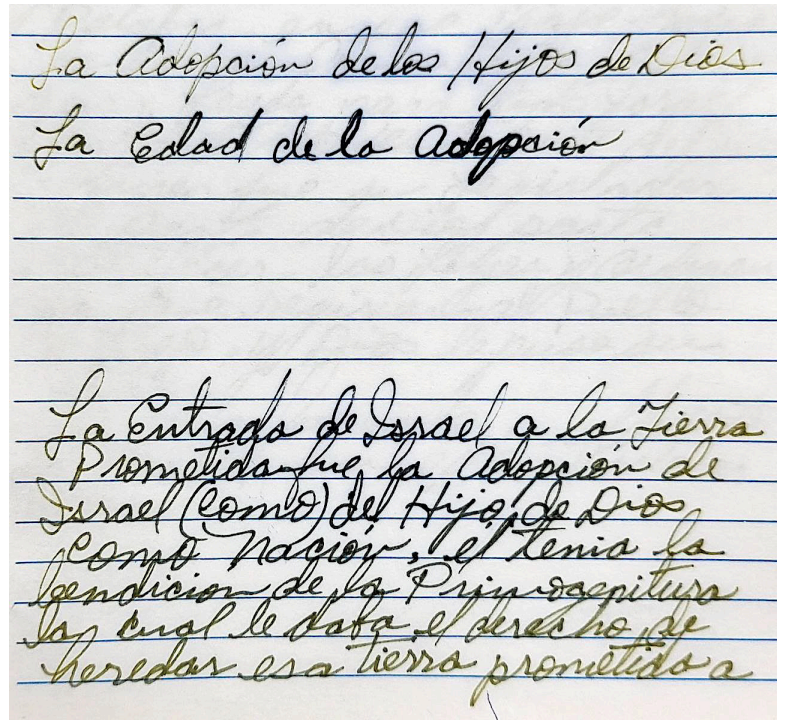 La Adopción de los Hijos de Dios
La Edad de la Adopción
La Entrada de Israel a la Tierra
Prometida fue la Adopción de
Israel (como) de Hijo de Dios
como Nación, el tenia la
bendicion de la Primogenitura
la cual le daba el derecho de
heredar esa tierra prometida a